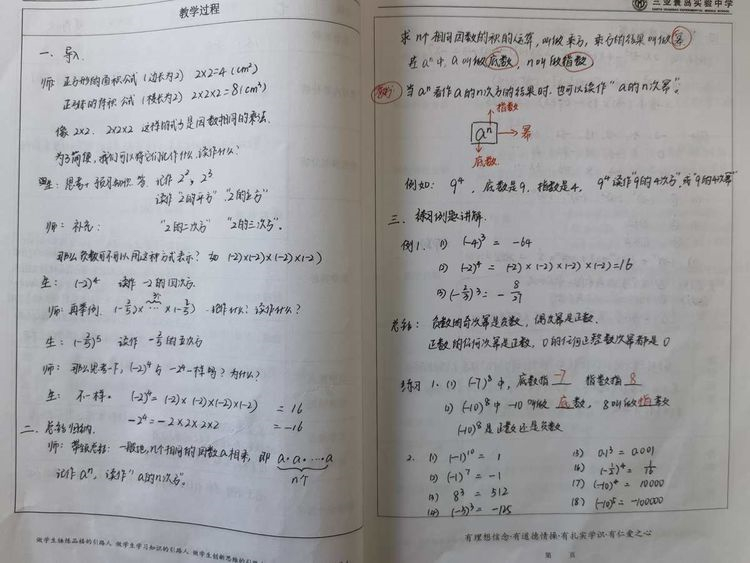 教学过程
一、导入
师: 正方形的面积公式 (边长为2) 2×2=4 (cm²)
正方体的体积公式 (棱长为2) 2×2×2=8 (cm³)
像 2×2、2×2×2 这样的式子是因数相同的乘法.
为了简便, 我们可以将它们记作什么. 读作什么?
生: 思考+预习知识 答: 记作 2², 2³
读作 "2的平方" "2的立方"
师: 补充: "2的二次方" "2的三次方".
那么负数可不可以用这种方式表示? 如 (-2)×(-2)×(-2)×(-2)
生: (-2)⁴ 读作 -2的四次方.
师: 再举例. 记作什么? 读作什么?
生: 读作 的五次方
师: 那么思考一下, (-2)⁴与 -2⁴一样吗? 为什么?
生: 不一样. (-2)⁴= (-2)×(-2)×(-2)×(-2) = 16
-2⁴ = -2×2×2×2 = -16
二、总结归纳.
师: 带领总结: 一般地, n个相同的因数a相乘, 即 a·a·…·a
n个
记作 aⁿ, 读作 "a的n次方".
做学生锤炼品格的引路人 做学生学习知识的引路人 做学生创新思维的引路人
三亚寰岛实验中学
求n个相同因数的积的运算, 叫做乘方, 乘方的结果叫做幂
在 aⁿ中, a叫做底数, n叫做指数.
当aⁿ看作a的n次方的结果时, 也可以读作 "a的n次幂".
指数
aⁿ → 幂
底数
例如: 9⁴, 底数是9, 指数是4, 9⁴读作"9的4次方", 或"9的4次幂"
三、练习例题讲解.
例1. (1) (-4)³ = -64
(2) (-2)⁴ = (-2)×(-2)×(-2)×(-2)=16
(3) (-2/3)³ = -8/27
总结: 负数的奇次幂是负数, 偶次幂是正数.
正数的任何次幂是正数, 0的任何正整数次幂都是0
练习 1. (1) (-7)⁸中, 底数是 -7 指数是 8
(2) (-10)⁸中 -10叫做 底 数, 8叫做 指 数
(-10)⁸是正数还是负数
2. (1) (-1)¹⁰ = 1 (5) 0.1³ = 0.001
(2) (-1)⁷ = -1 (6) (-1/2)⁴ = 1/16
(3) 8³ = 512 (7) (-10)⁴ = 10000
(4) (-5)³ = -125 (8) (-10)⁵ = -100000
有理想信念·有道德情操·有扎实学识·有仁爱之心
第 页